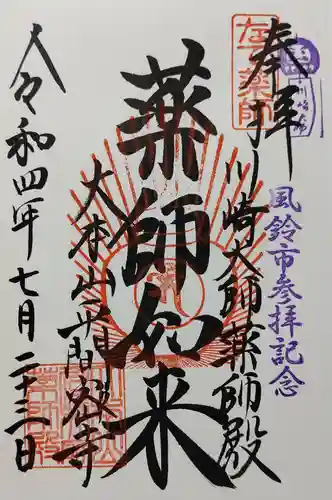 奉拝
川崎大師薬師殿
風鈴市参拝記念
薬師如来
大本山平間寺
令和四年七月二十三日